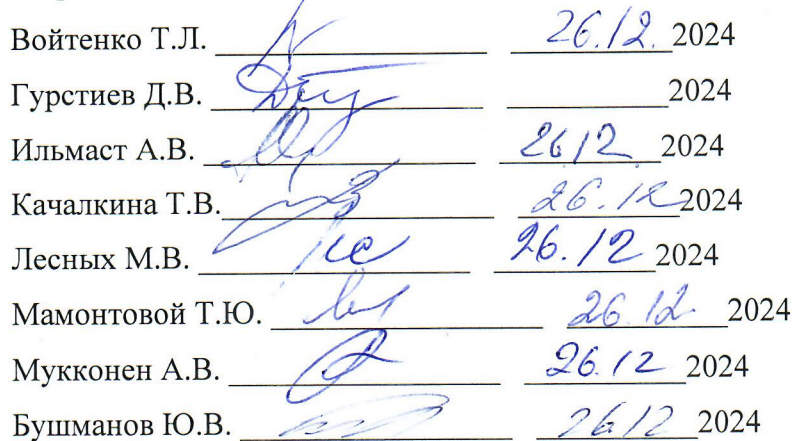 Войтенко Т.Л. 26.12.2024
Гурстиев Д.В. 2024
Ильмаст А.В. 26 12 2024
Качалкина Т.В. 26.12 2024
Лесных М.В. 26.12 2024
Мамонтовой Т.Ю. 26.12. 2024
Мукконен А.В. 26.12 2024
Бушманов Ю.В. 26 12 2024